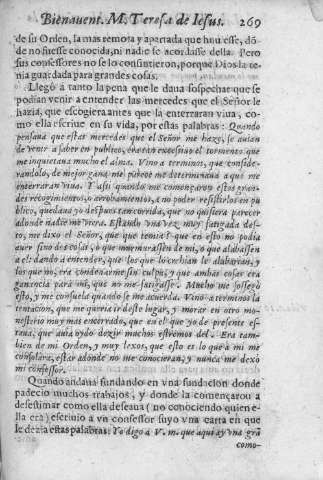 Bienauent. M. Teresa de Iesus. 269
de su Orden, la mas remota y apartada que huuiesse, dõ
de no fuesse conocida, ni nadie se acordasse della. Pero
sus confessores no se lo consintieron, porque Dios la te
nia guardada para grandes cosas.
Llegò a tanto la pena que le daua sospechar que se
podian venir a entender las mercedes que el Señor le
hazia, que escogiera antes que la enterraran viua, co-
mo ella escriue en su vida, por estas palabras: Quando
pensaua que estas mercedes que el Señor me haze, se auian
de venir a saber en publico, era tan excessiuo el tormento que
me inquietaua mucho el alma. Vino a terminos, que conside-
randolo, de mejor gana me parece me determinaua a que me
enterraran viua. Y assi quando me començaron estos gran-
des recogimientos, o arrobamientos, a no poder resistirlos en pu
blico, quedaua yo despues tan corrida, que no quisiera parecer
adonde nadie me viera. Estando vna vez muy fatigada des-
to, me dixo el Señor, que que temia? que en esto no podia
auer sino dos cosas, o que murmurassen de mi, o que alabassen
a el: dando a entender, que los que lo creian le alabarian, y
los que no, era condenarme sin culpa, y que ambas cosas eran
ganancia para mi, que no me fatigasse. Mucho me sossegò
esto, y me consuela quando se me acuerda. Vino a terminos la
tentacion, que me queria ir deste lugar, y morar en otro mo-
nesterio muy mas encerrado, que en el que yo de presente es-
taua, que auia oydo dezir muchos estremos del. Era tam
bien de mi Orden, y muy lexos, que esto es lo que a mi me
consolara, estar adonde no me conocieran, y nunca me dexò
mi confessor.
Quando andaua fundando en vna fundacion donde
padecio muchos trabajos, y donde la començaron a
desestimar como ella deseaua (no conociendo quien e-
lla era) escriuio a vn confessor suyo vna carta en que
le dezia estas palabras: Yo digo a V. m. que aqui ay vna grã
como-